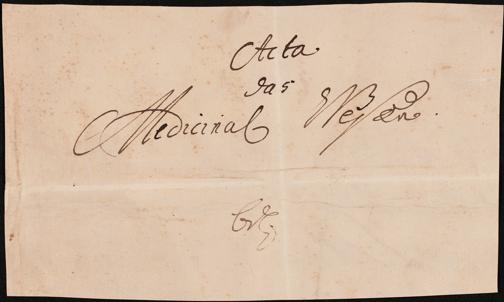 Acta
das
Medicinal Weßen.